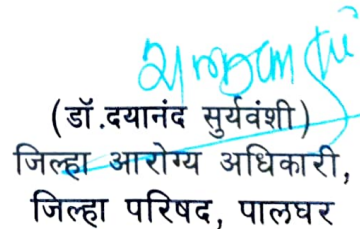 (डॉ.दयानंद सुर्यवंशी)
जिल्हा आरोग्य अधिकारी,
जिल्हा परिषद, पालघर